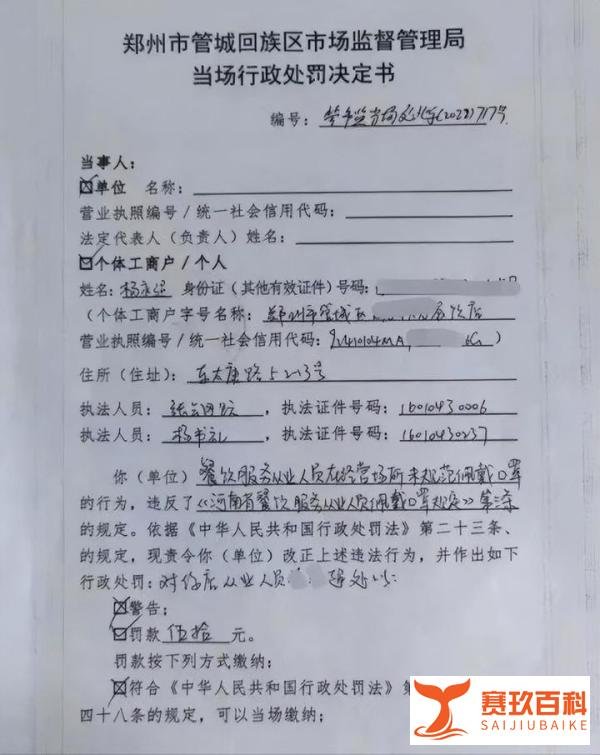 郑州市管城回族区市场监督管理局
当场行政处罚决定书
编号：管市监当场处字(2022)717号
当事人：
单位 名称：
营业执照编号/统一社会信用代码：
法定代表人（负责人）姓名：
个体工商户/个人
姓名：杨 身份证（其他有效证件）号码：
（个体工商户字号名称：郑州市管城区 饮店
营业执照编号/统一社会信用代码：92410104MA )
住所（住址）：东太康路 号
执法人员：张 ，执法证件号码：16010430006
执法人员：杨书礼，执法证件号码：16010430237
你（单位）餐饮服务从业人员在经营场所未规范佩戴口罩
的行为，违反了《河南省餐饮服务从业人员佩戴口罩规定》第 条
的规定。依据《中华人民共和国行政处罚法》第二十三条、
的规定，现责令你（单位）改正上述违法行为，并作出如下
行政处罚：对你店从业人员 处以：
警告；
罚款 伍拾 元。
罚款按下列方式缴纳：
符合《中华人民共和国行政处罚法》第
四十八条的规定，可以当场缴纳；
赛玖百科
SAIJIUBAIKE